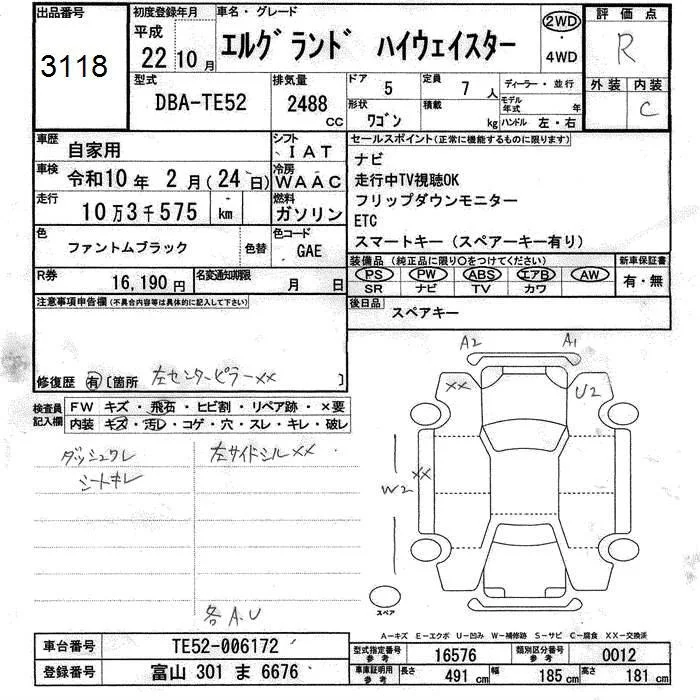 出品番号
3118
初度登録年月
平成
22 10月
車名・グレード
エルグランド ハイウェイスター
2WD
・
4WD
評価点
R
外装 内装
C
型式
DBA-TE52
排気量
2488 cc
ドア 5
定員 7 人
形状 ワゴン
積載 kg
ディーラー・並行
モデル年式 年
ハンドル 左・右
車歴 自家用
シフト IAT
車検 令和10年 2月(24日)
冷房 WAAC
走行 10万3千575 km
燃料 ガソリン
色 ファントムブラック 色替
色コード GAE
R券 16,190円
名変通知期限 月 日
セールスポイント(正常に機能するものに限ります)
ナビ
走行中TV視聴OK
フリップダウンモニター
ETC
スマートキー(スペアーキー有り)
装備品(純正品に限り○をつけてください)
PS PW ABS エアB AW
SR ナビ TV カワ
新車保証書
有・無
後日品 スペアキー
注意事項申告欄(不具合内容等は具体的に記入して下さい)
修復歴 有 [箇所 左センターピラーXX ]
検査員記入欄
FW キズ・飛石・ヒビ割・リペア跡・×要
内装 キズ・汚レ・コゲ・穴・スレ・キレ・破レ
ダッシュワレ
シートキレ
左サイドシルXX
各A.U
A2 A1
XX U2
XX
W2
スペア
A-キズ E-エクボ U-凹み W-補修跡 S-サビ C-腐食 XX-交換済
車台番号 TE52-006172
登録番号 富山 301 ま 6676
型式指定番号 参考 16576
類別区分番号 参考 0012
車庫証明用 参考 長さ 491 cm 幅 185 cm 高さ 181 cm